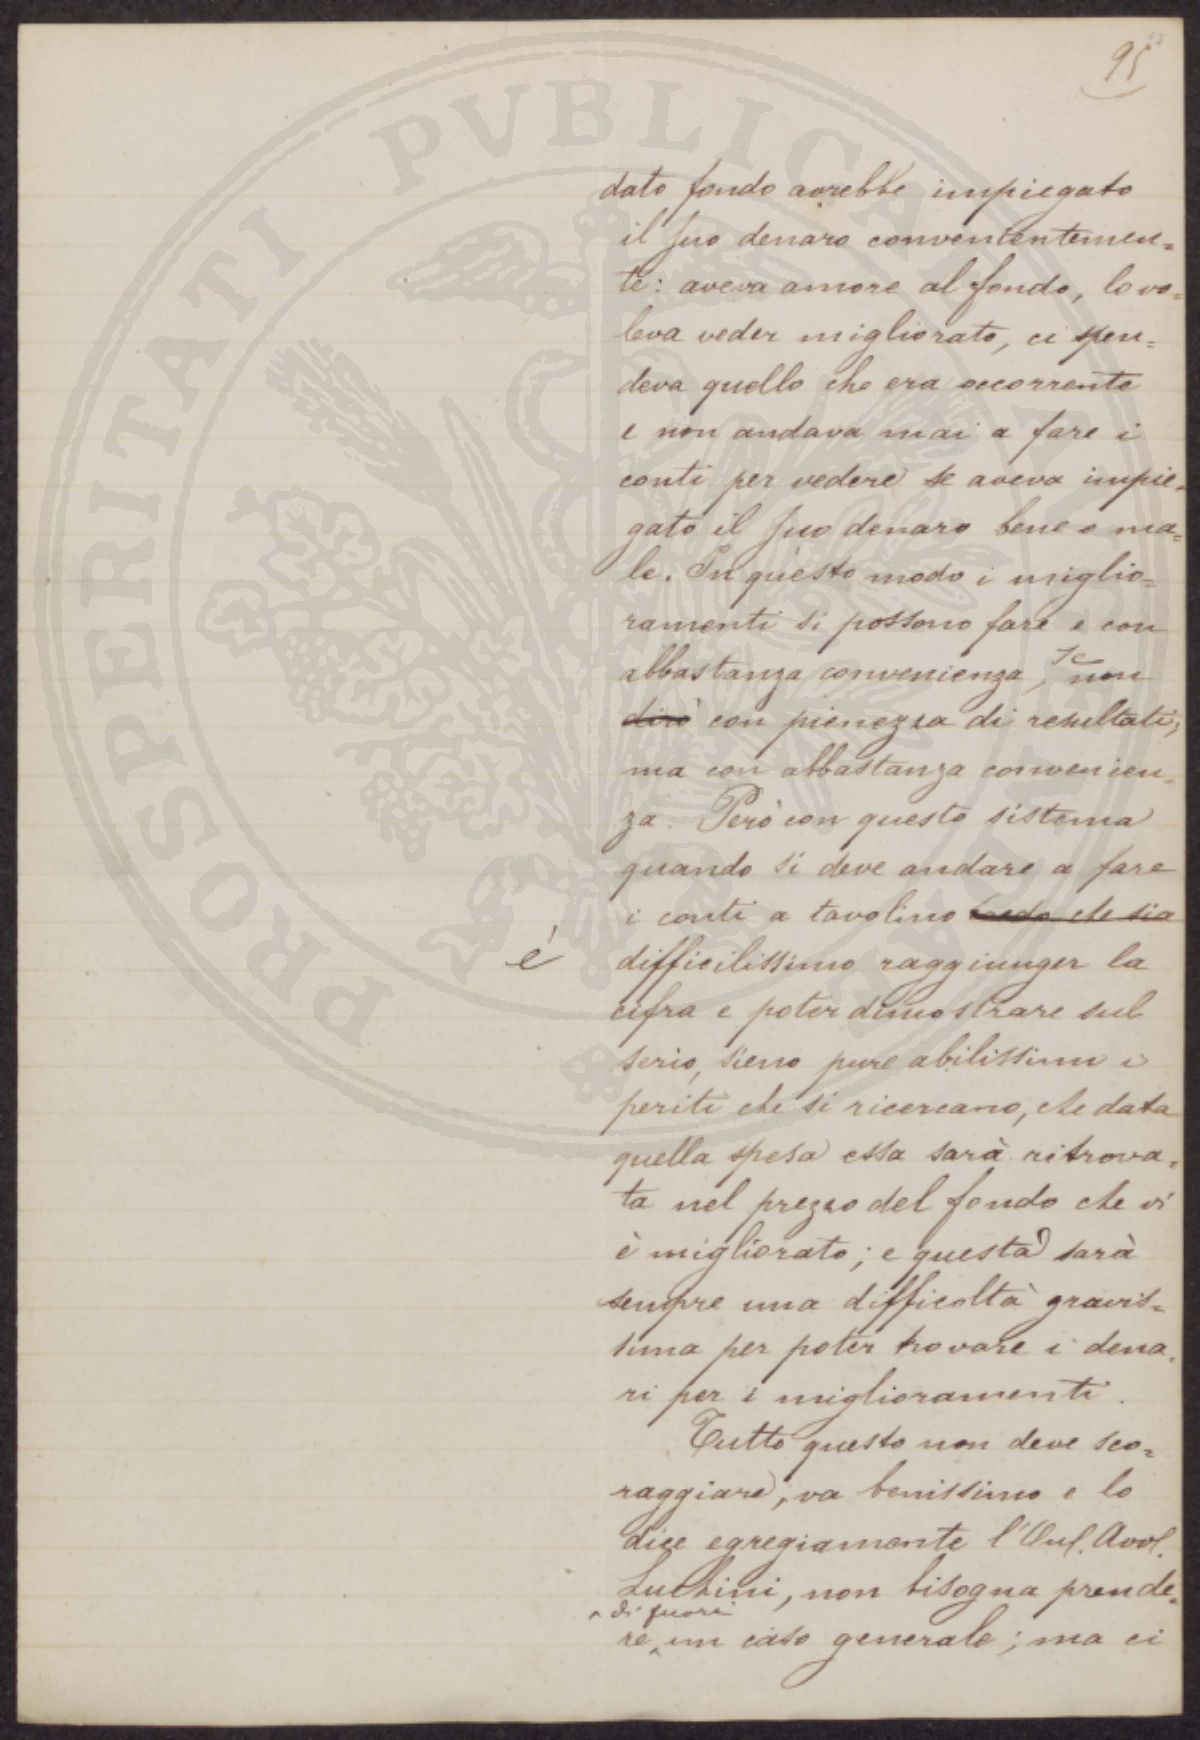 95
dato fondo avrebbe impiegato
il suo denaro convenientemen=
te: aveva amore al fondo, lo vo=
leva veder migliorato, ci spen=
deva quello che era occorrente
e non andava mai a fare i
conti per vedere se aveva impie=
gato il suo denaro bene o ma=
le. In questo modo i miglio=
ramenti si possono fare e con
abbastanza convenienza, se non
dirò con pienezza di resultati,
ma con abbastanza convenien=
za. Però con questo sistema
quando si deve andare a fare
i conti a tavolino credo che sia
è difficilissimo raggiunger la
cifra e poter dimostrare sul
serio, sieno pure abilissimi i
periti che si ricercano, che data
quella spesa essa sarà ritrova=
ta nel prezzo del fondo che vi
è migliorato; e questa sarà
sempre una difficoltà gravis=
sima per poter trovare i dena=
ri per i miglioramenti.
Tutto questo non deve sco=
raggiare, va benissimo e lo
dice egregiamente l'On. Avv.
Luchini, non bisogna prende=
di fuori
re un caso generale; ma ci
PROSPERITATI PVBLICAE